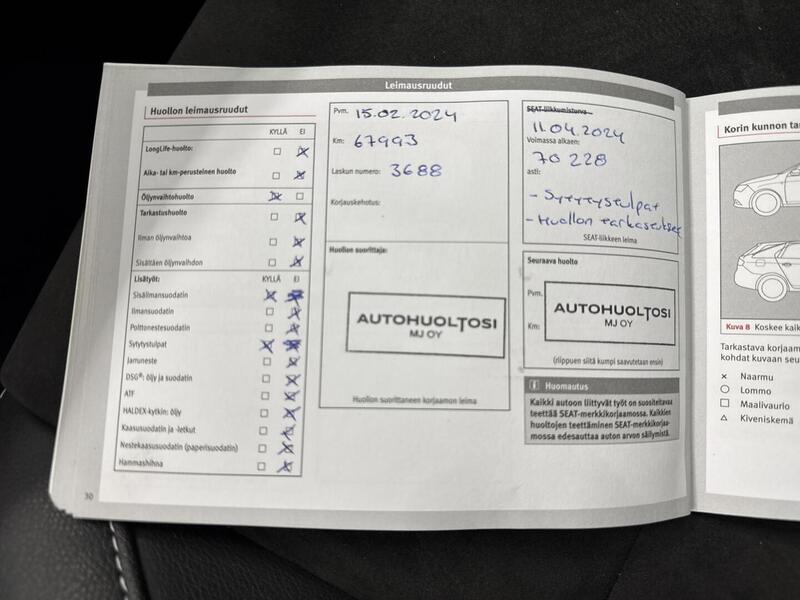 Leimausruudut
Huollon leimausruudut
KYLLÄ EI
LongLife-huolto:
Aika- tai km-perusteinen huolto
Öljynvaihtohuolto
Tarkastushuolto
Ilman öljynvaihtoa
Sisältäen öljynvaihdon
Lisätyöt: KYLLÄ EI
Sisäilmansuodatin
Ilmansuodatin
Polttonestesuodatin
Sytytystulpat
Jarruneste
DSG®: öljy ja suodatin
ATF
HALDEX-kytkin: öljy
Kaasusuodatin ja -letkut
Nestekaasusuodatin (paperisuodatin)
Hammashihna
30
Pvm. 15.02.2024
Km: 67993
Laskun numero: 3688
Korjauskehotus:
Huollon suorittaja:
AUTOHUOLTOSI
MJ OY
Huollon suorittaneen korjaamon leima
SEAT-liikkumisturva
11.04.2024
Voimassa alkaen:
70 228
asti:
- Sytytystulpat
- Huollon tarkastukset
SEAT-liikkeen leima
Seuraava huolto
Pvm.
Km:
AUTOHUOLTOSI
MJ OY
(riippuen siitä kumpi saavutetaan ensin)
i Huomautus
Kaikki autoon liittyvät työt on suositeltavaa
teettää SEAT-merkkikorjaamossa. Kaikkien
huoltojen teettäminen SEAT-merkkikorjaa-
mossa edesauttaa auton arvon säilymistä.
Korin kunnon tar
Kuva 8 Koskee kaik
Tarkastava korjaam
kohdat kuvaan seu
× Naarmu
○ Lommo
□ Maalivaurio
△ Kiveniskemä